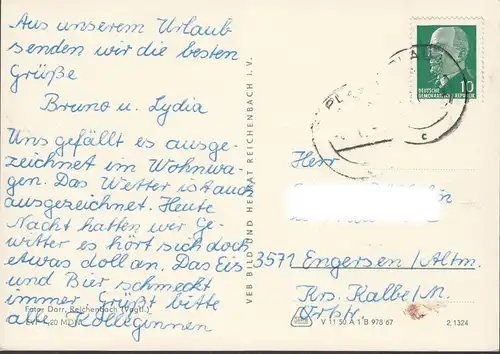 Aus unserem Urlaub
senden wir die besten
Grüße
Bruno u. Lydia
Uns gefällt es ausge-
zeichnet im Wohnwa-
gen. Das Wetter ist auch
ausgezeichnet. Heute
Nacht hatten wir Ge-
witter es hört sich doch
etwas doll an. Das Eis
und Bier schmeckt
immer Grüßt bitte
alle Kolleginnen
Foto: Darr, Reichenbach (Vogtl.)
EVP 20 MDN
VEB BILD UND HEIMAT REICHENBACH I. V.
10
DEUTSCHE
DEMOKRATISCHE REPUBLIK
PLAU
c
Herr
3571 Engersen/Altm.
Krs. Kalbe/M.
Ortstr.
V 11 50 A 1 B 978 67
2 1324